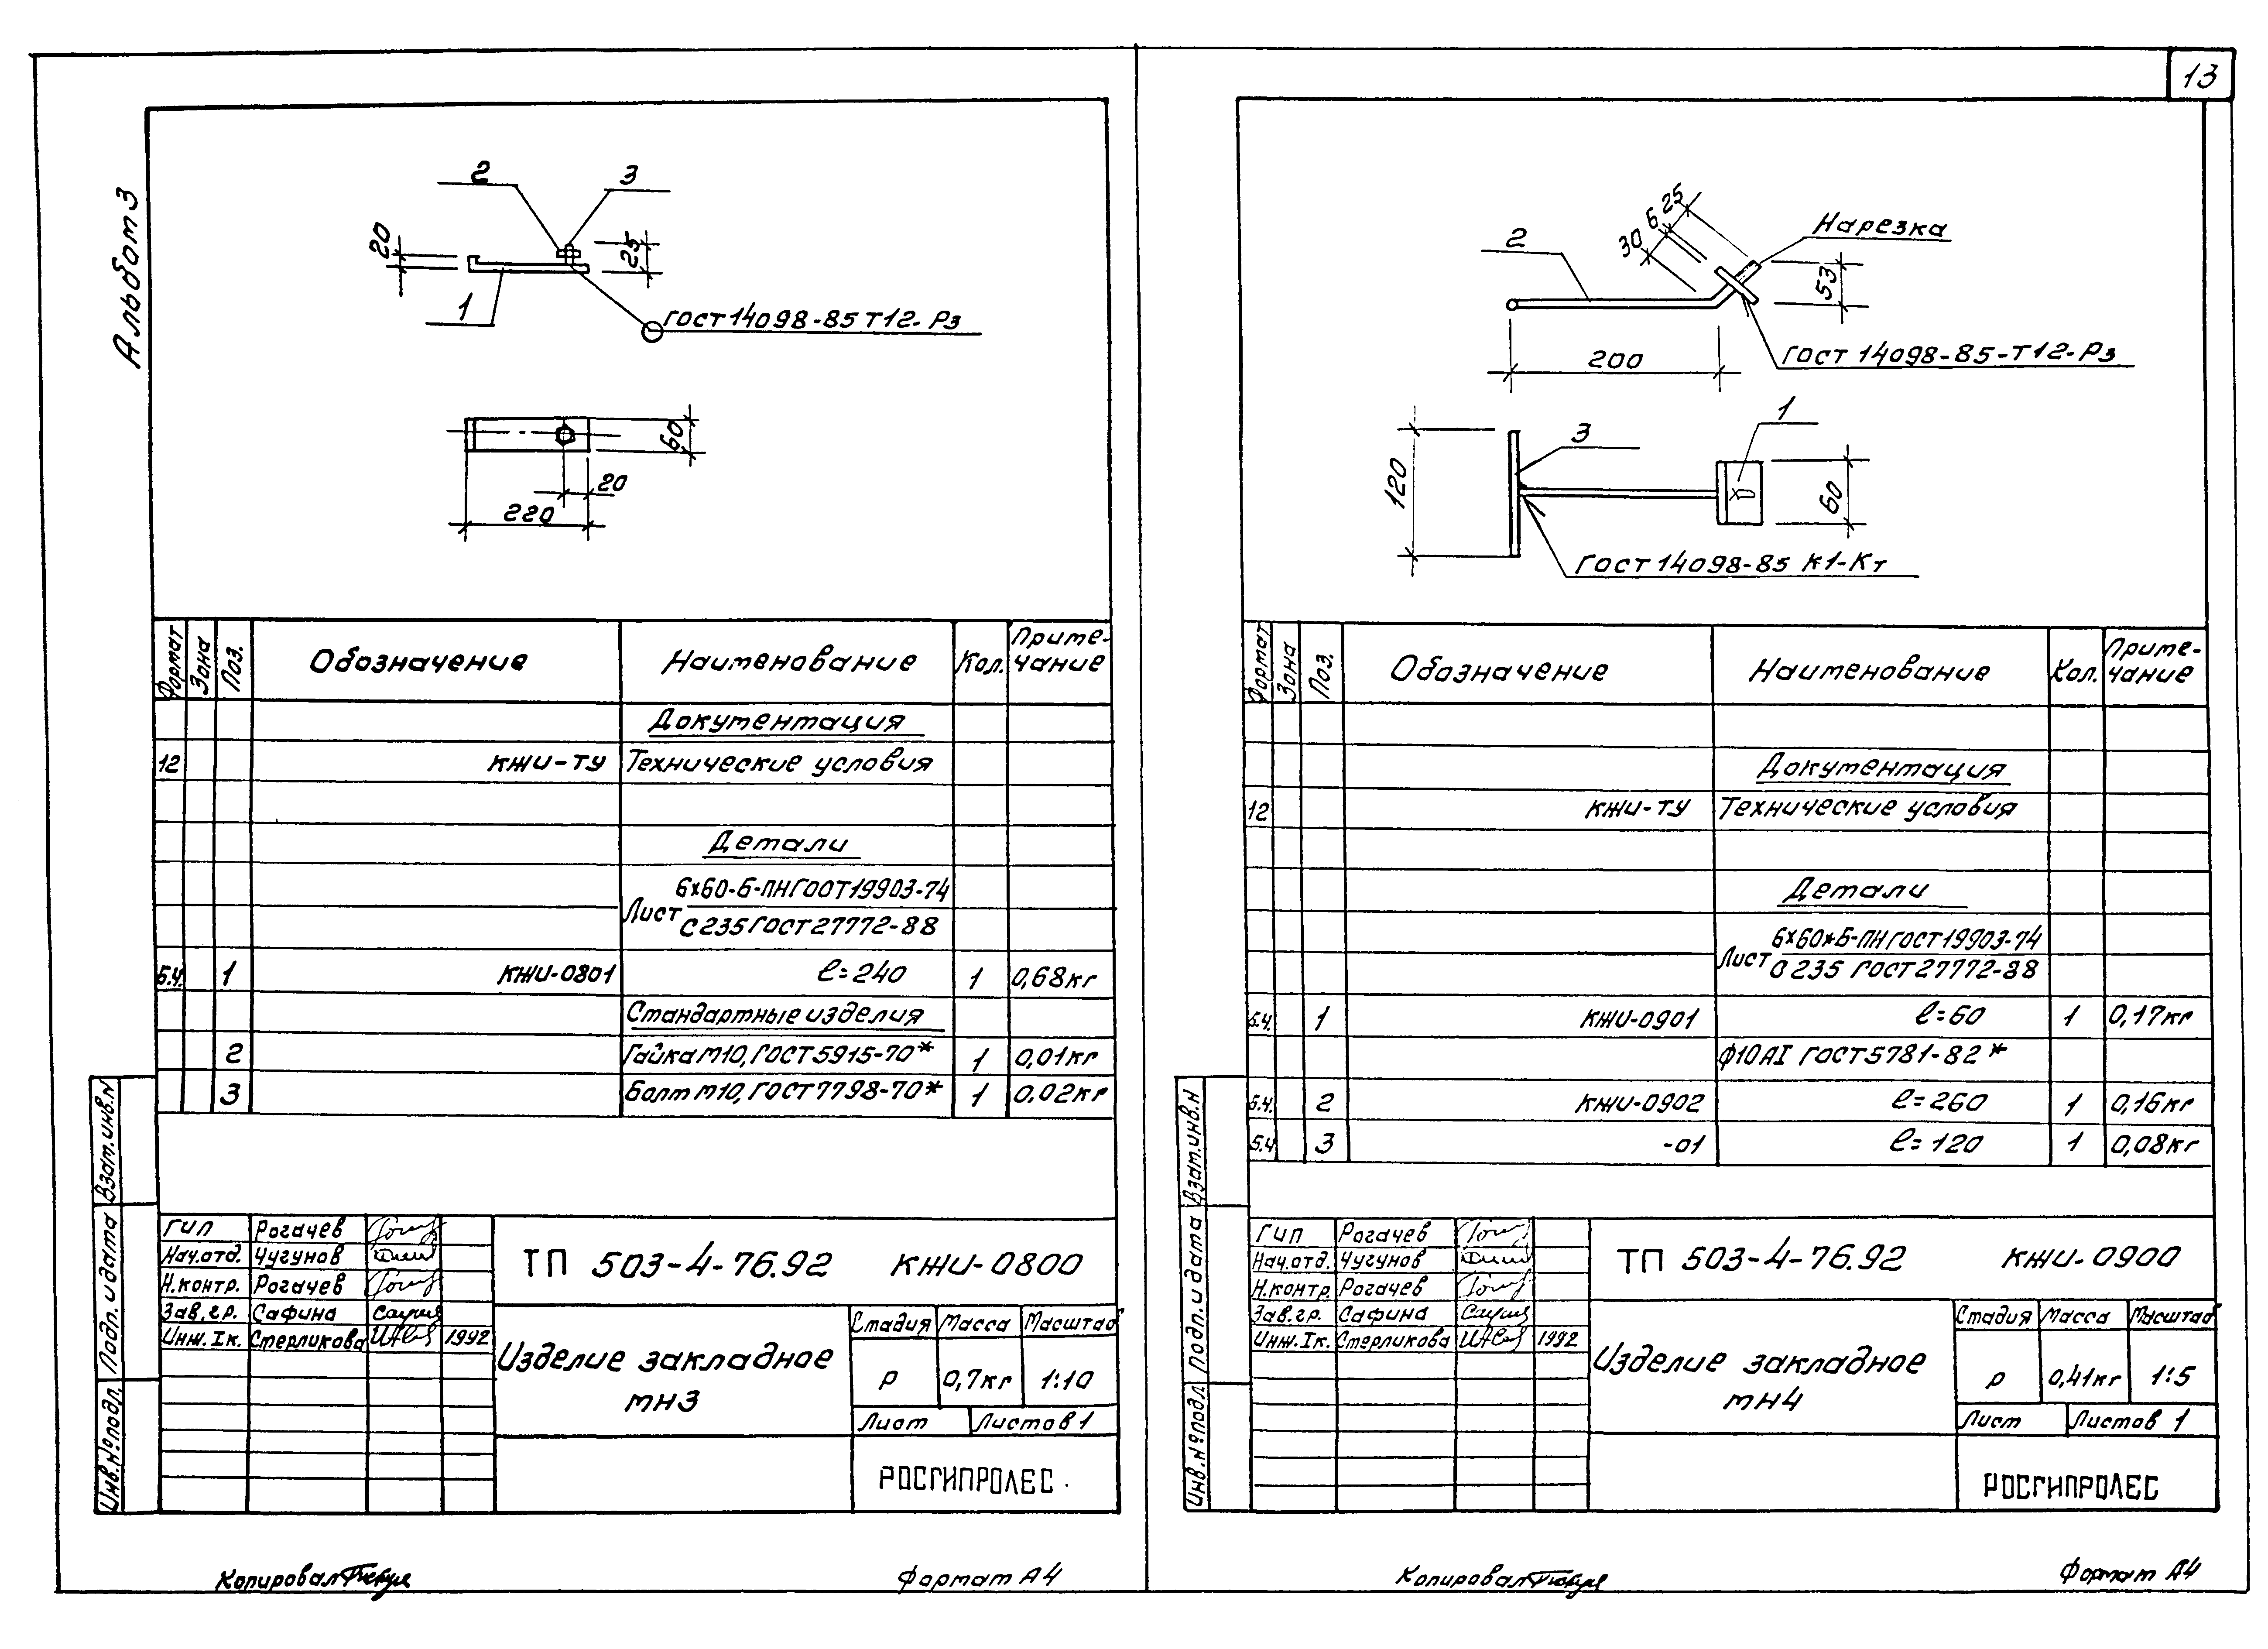 13
Альбом 3
2
3
20
25
1
ГОСТ 14098-85 Т12-Рз
60
20
220
Формат Зона Поз. Обозначение Наименование Кол. Приме-чание
Документация
12 КЖИ-ТУ Технические условия
Детали
Лист 6х60-Б-ПН ГОСТ 19903-74
С235 ГОСТ 27772-88
Б.Ч. 1 КЖИ-0801 ℓ=240 1 0,68кг
Стандартные изделия
2 Гайка М10, ГОСТ 5915-70* 1 0,01кг
3 Болт М10, ГОСТ 7798-70* 1 0,02кг
Взам.инв.N
Подп. и дата
Инв.N°подл.
ГИП Рогачев
Нач.отд. Чугунов
Н.контр. Рогачев
Зав.гр. Сафина
Инж.Iк. Стерликова 1992
ТП 503-4-76.92 КЖИ-0800
Изделие закладное
МН3
Стадия Масса Масштаб
Р 0,7кг 1:10
Лист Листов 1
РОСГИПРОЛЕС
Копировал
Формат А4
25
6
30
Нарезка
2
53
200
ГОСТ 14098-85-Т12-Рз
1
3
120
60
ГОСТ 14098-85 К1-Кт
Формат Зона Поз. Обозначение Наименование Кол. Приме-чание
Документация
12 КЖИ-ТУ Технические условия
Детали
Лист 6х60хБ-ПН ГОСТ 19903-74
С235 ГОСТ 27772-88
Б.Ч. 1 КЖИ-0901 ℓ=60 1 0,17кг
Ф10АI ГОСТ 5781-82*
Б.Ч. 2 КЖИ-0902 ℓ=260 1 0,16кг
Б.Ч 3 -01 ℓ=120 1 0,08кг
Взам.инв.N
Подп. и дата
Инв.N°подл.
ГИП Рогачев
Нач.отд. Чугунов
Н.контр. Рогачев
Зав.гр. Сафина
Инж.Iк. Стерликова 1992
ТП 503-4-76.92 КЖИ-0900
Изделие закладное
МН4
Стадия Масса Масштаб
Р 0,41кг 1:5
Лист Листов 1
РОСГИПРОЛЕС
Копировал
Формат А4